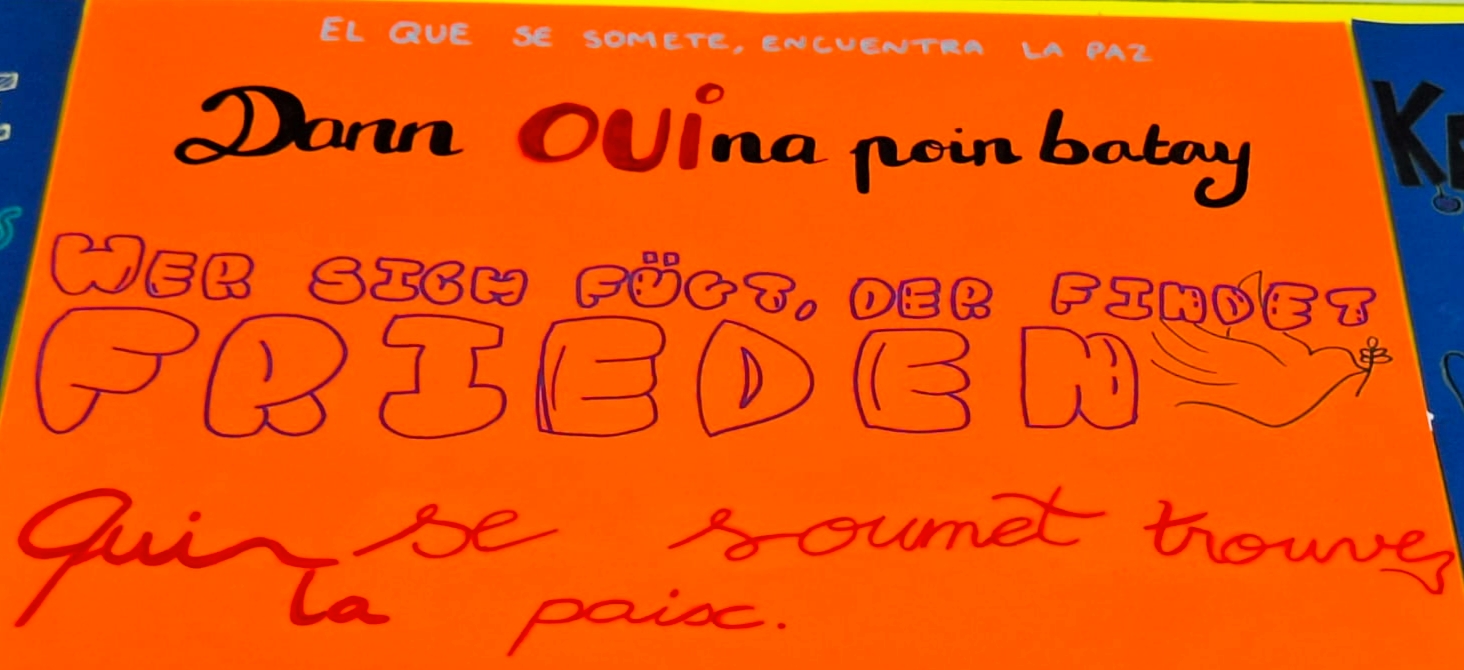 EL QUE SE SOMETE, ENCUENTRA LA PAZ
Dann OUi na poin batay
WER SICH FÜGT, DER FINDET
FRIEDEN
Qui se soumet trouve
la paix.